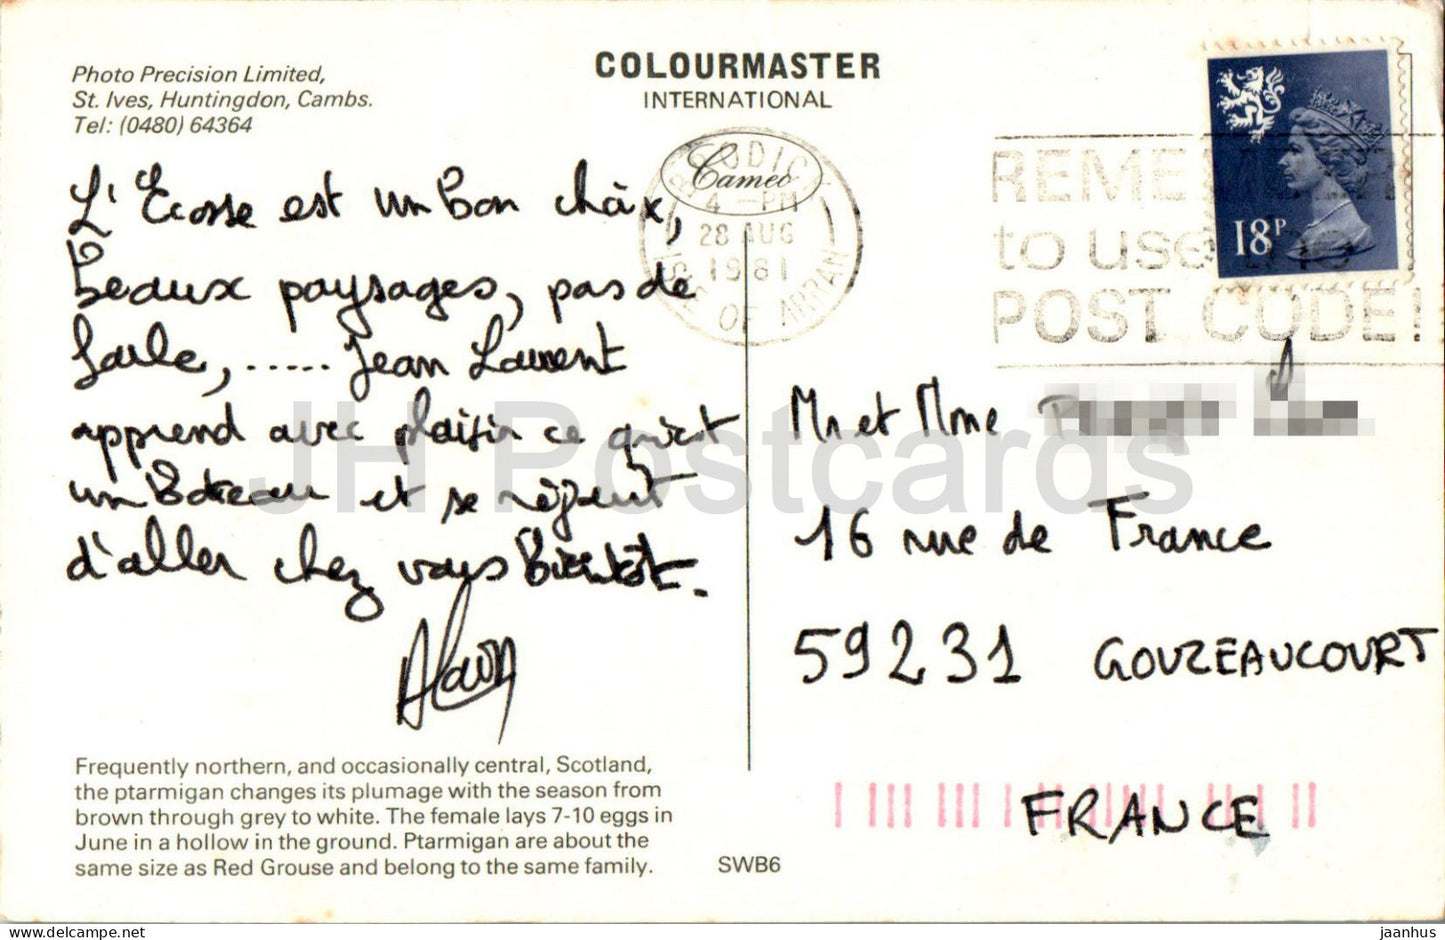 Photo Precision Limited,
St. Ives, Huntingdon, Cambs.
Tel: (0480) 64364
COLOURMASTER
INTERNATIONAL
Cameo
4 -PM
28 AUG
1981
ISLE OF ARRAN
REMEMBER
to use the
POST CODE!
18P
L'Ecosse est un Bon choix,
Beaux paysages, pas de
foule, ..... Jean Laurent
apprend avec plaisir ce qu'est
un Bateau et se réjouit
d'aller chez vous Bientôt.
Alain
Mr et Mme
16 rue de France
59231 GOUZEAUCOURT
FRANCE
Frequently northern, and occasionally central, Scotland,
the ptarmigan changes its plumage with the season from
brown through grey to white. The female lays 7-10 eggs in
June in a hollow in the ground. Ptarmigan are about the
same size as Red Grouse and belong to the same family.
SWB6
JH Postcards
jaanhus
www.hippostcard.com